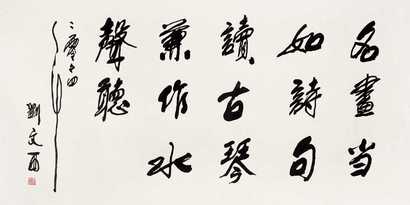 名畫当
如詩句
讀古琴
兼作水
聲聽
二零一四
劉文西